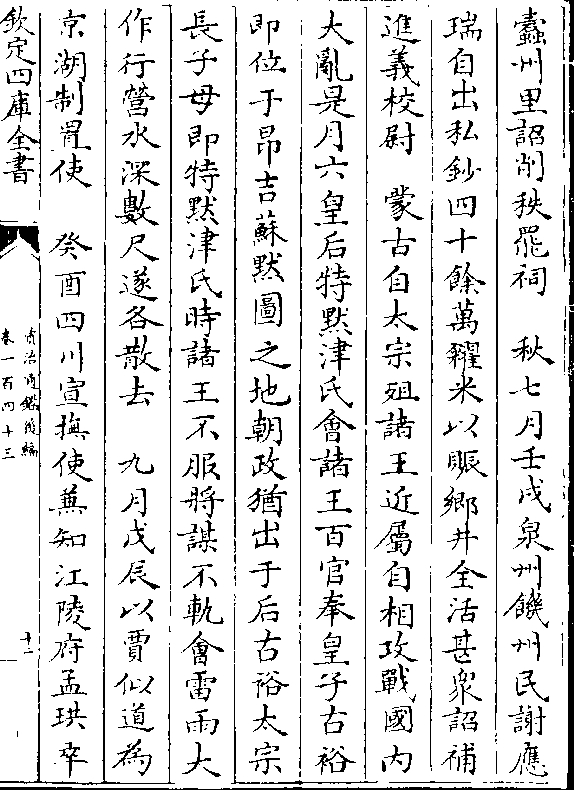 蠹州里詔削秩罷祠　秋七月壬戌泉州饑州民謝應
瑞自出私鈔四十餘萬糴米以賑鄉井全活甚衆詔補
進義校尉　蒙古自太宗殂諸王近屬自相攻戰國内
大亂是月六皇后特默津氏會諸王百官奉皇子古裕
即位于昂吉蘇默圖之地朝政猶出于后古裕太宗
長子母即特默津氏時諸王不服將謀不軌會雷雨大
作行營水深數尺遂各散去　九月戊辰以賈似道為
京湖制置使　癸酉四川宣撫使兼知江陵府孟珙卒
欽定四庫全書
資治通鑑後編
卷一百四十三
十二